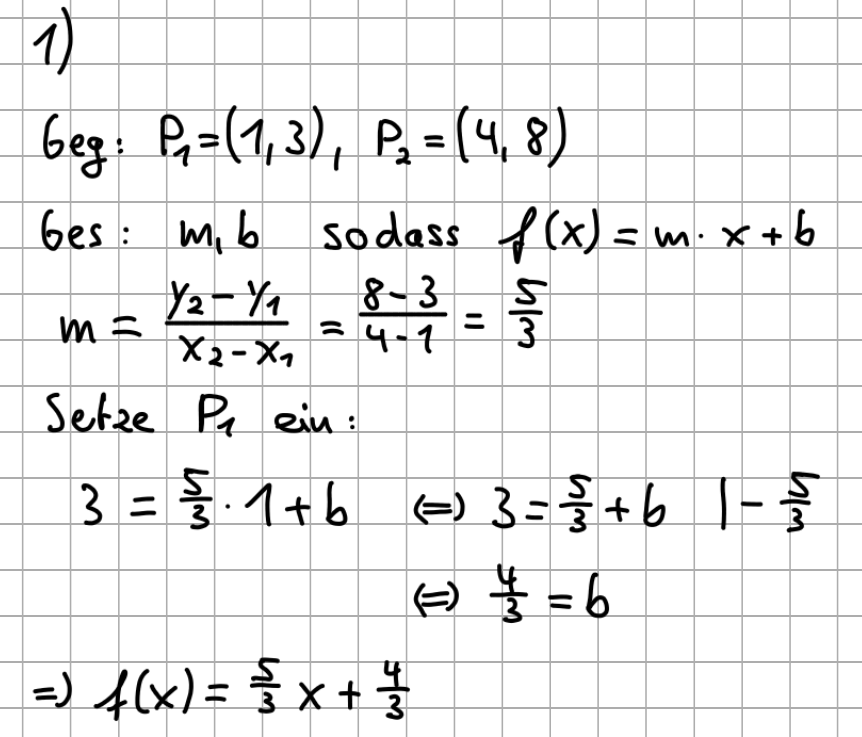 1)
Geg: P₁=(1,3), P₂=(4,8)
Ges: m, b sodass f(x) = m · x + b
m = (y₂ - y₁)/(x₂ - x₁) = (8 - 3)/(4 - 1) = 5/3
Setze P₁ ein:
3 = 5/3 · 1 + b ⇔ 3 = 5/3 + b | - 5/3
⇔ 4/3 = b
⇒ f(x) = 5/3 x + 4/3